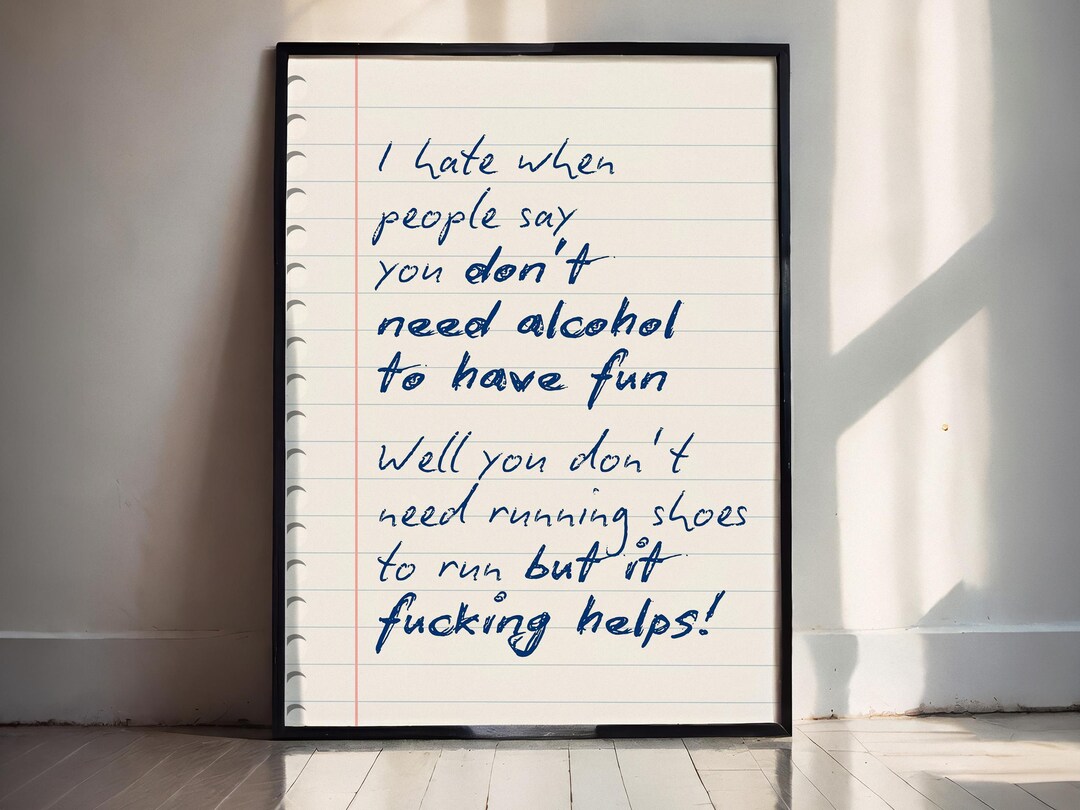 I hate when
people say
you don't
need alcohol
to have fun
Well you don't
need running shoes
to run but it
fucking helps!